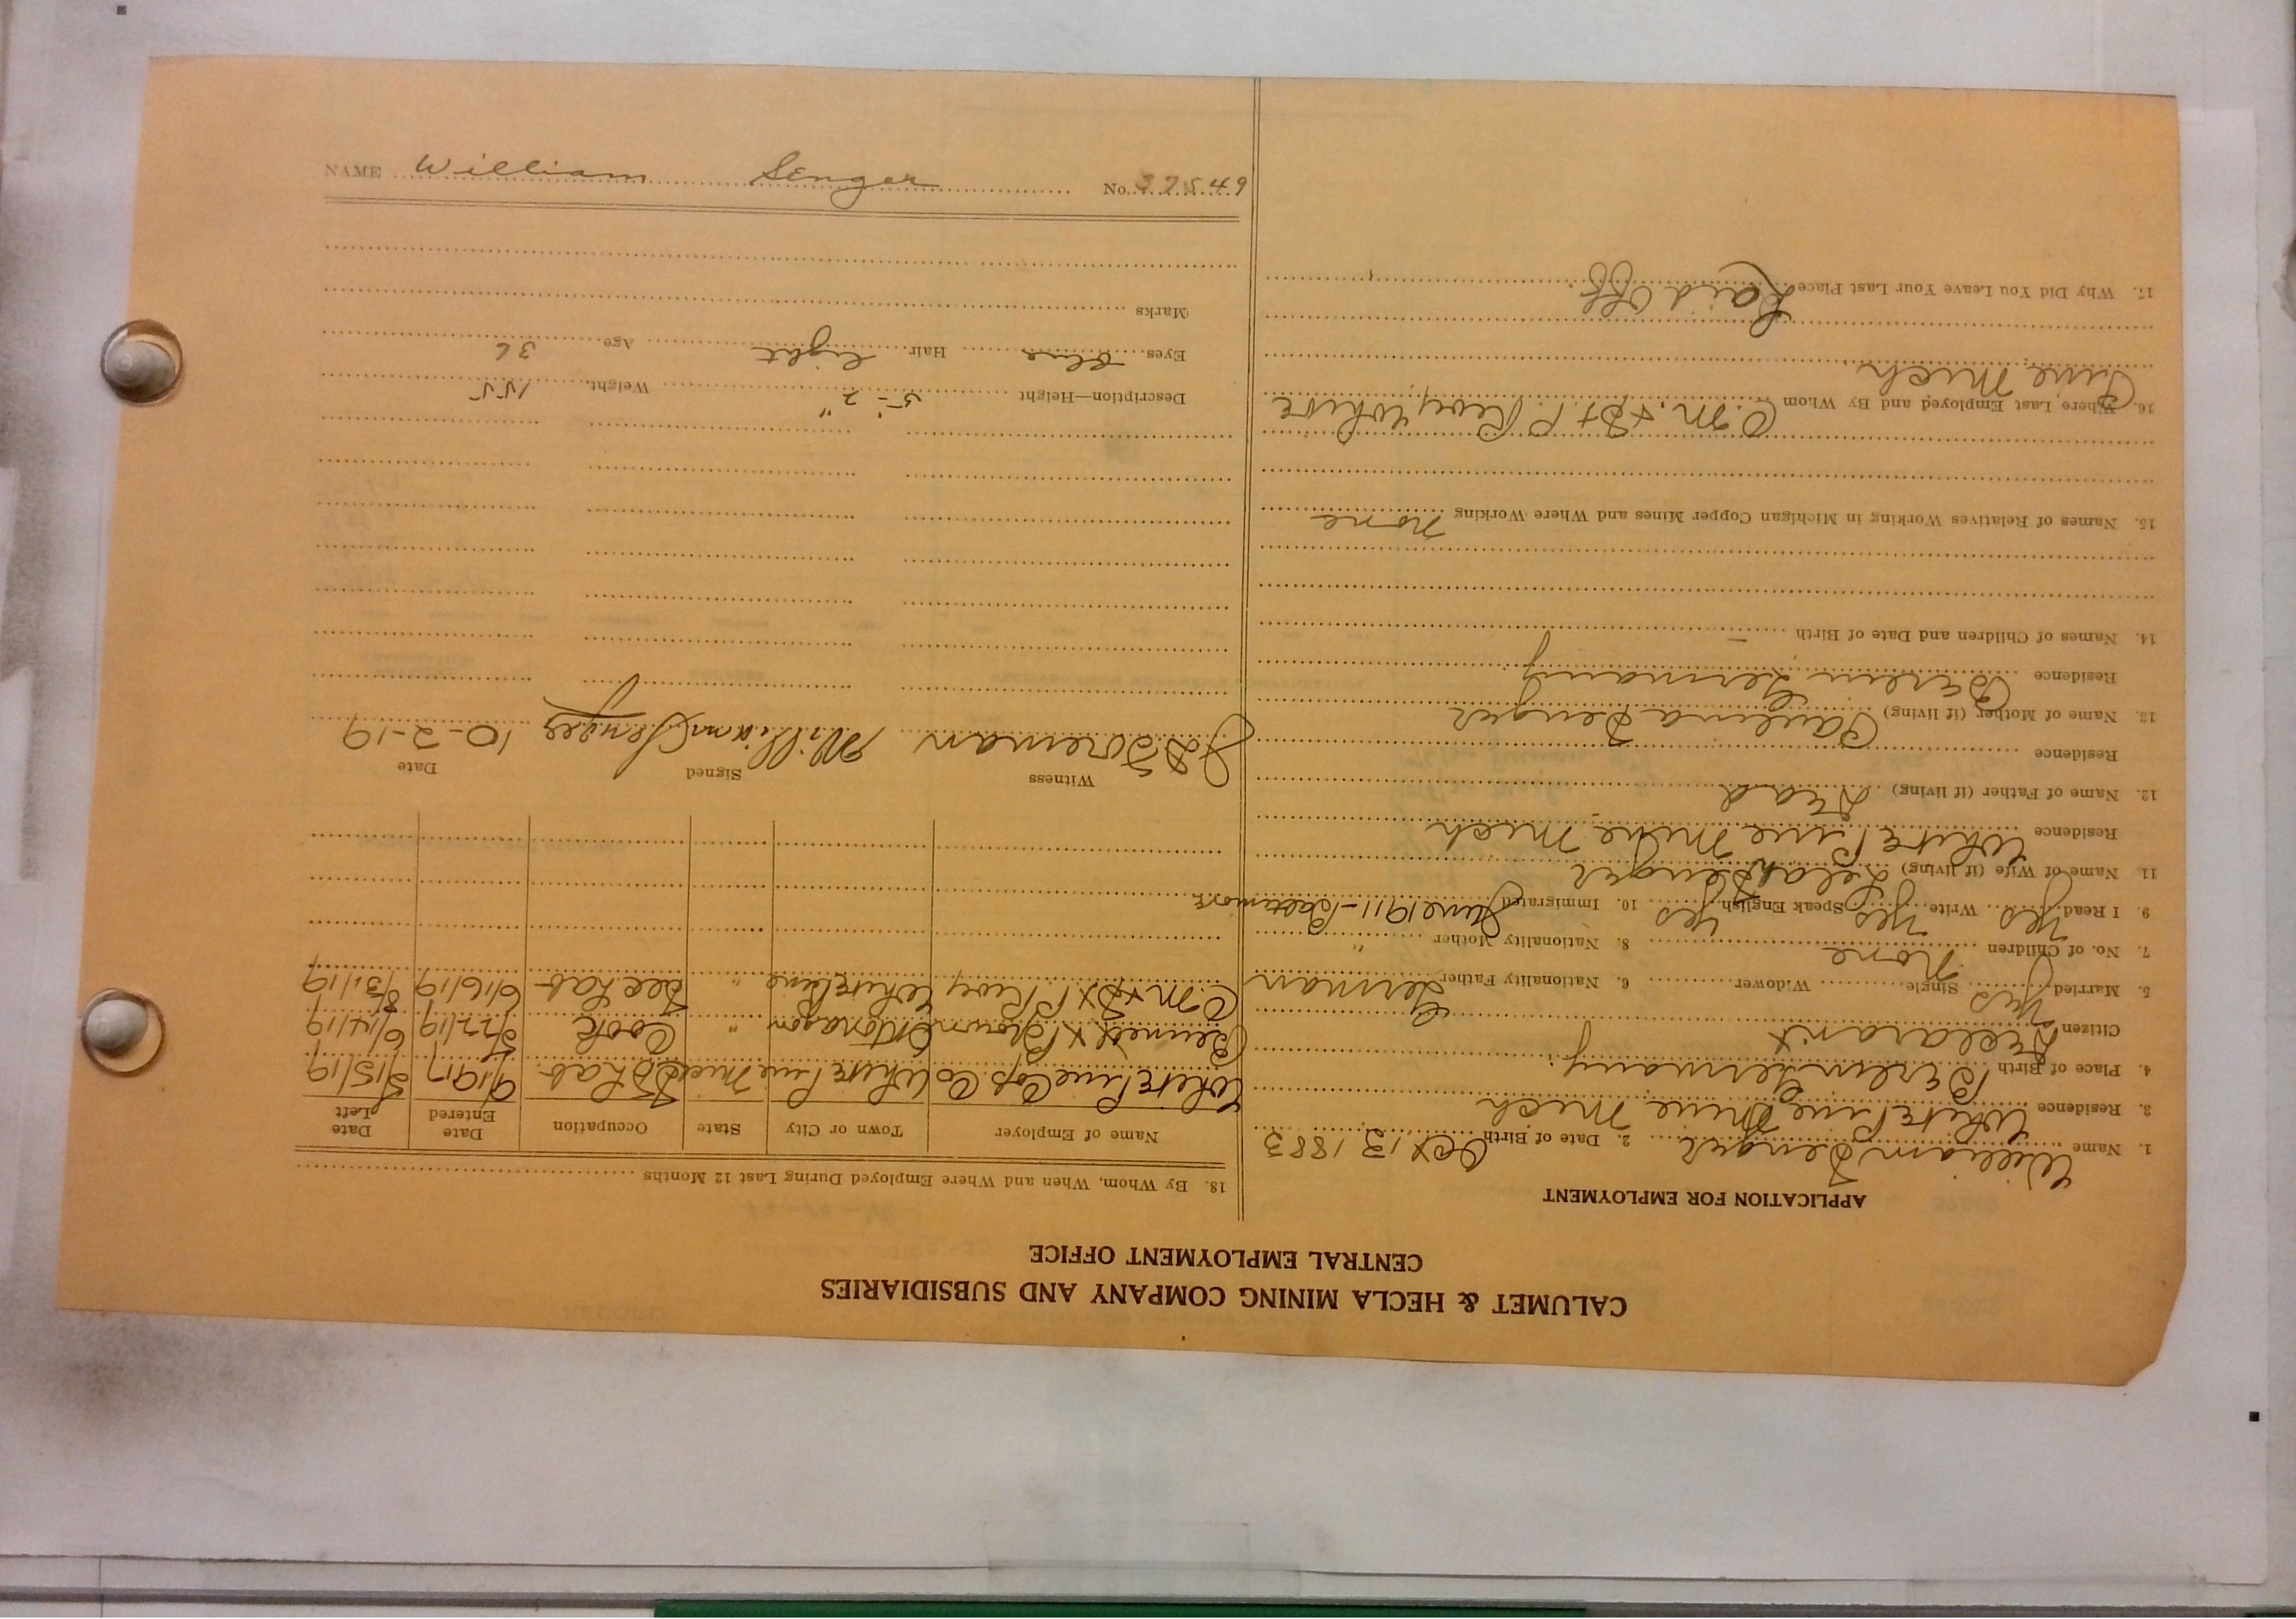 CALUMET & HECLA MINING COMPANY AND SUBSIDIARIES
CENTRAL EMPLOYMENT OFFICE
APPLICATION FOR EMPLOYMENT
1. Name William Senger 2. Date of Birth Oct 13 1883
3. Residence White Pine Mine Mich
4. Place of Birth Berlin Germany
Citizen Declarant
5. Married Yes Single Widower 6. Nationality Father German
7. No. of Children None 8. Nationality Mother "
9. I Read Yes Write Yes Speak English Yes 10. Immigrated June 1911 - Baltimore
11. Name of Wife (if living) Leah Senger
Residence White Pine Mine Mich
12. Name of Father (if living) Dead
Residence
13. Name of Mother (if living) Paulina Senger
Residence Berlin Germany
14. Names of Children and Date of Birth —
15. Names of Relatives Working in Michigan Copper Mines and Where Working None
16. Where Last Employed and By Whom C. M. & St. P. Rwy White
Pine Mich
17. Why Did You Leave Your Last Place Laid Off
18. By Whom, When and Where Employed During Last 12 Months
Name of Employer Town or City State Occupation Date Entered Date Left
White Pine Cop. Co White Pine Mich Lab. 9/1917 5/15/19
Bennett Ontonagon " Cook 5/22/19 6/14/19
C M & St P Rwy White Pine " Sec Lab 6/16/19 8/31/19
Witness Signed Date
J D Foreman William Senger 10-2-19
Description—Height 5'-2" Weight 155
Eyes blue Hair light Age 36
Marks
NAME William Senger No. 37549